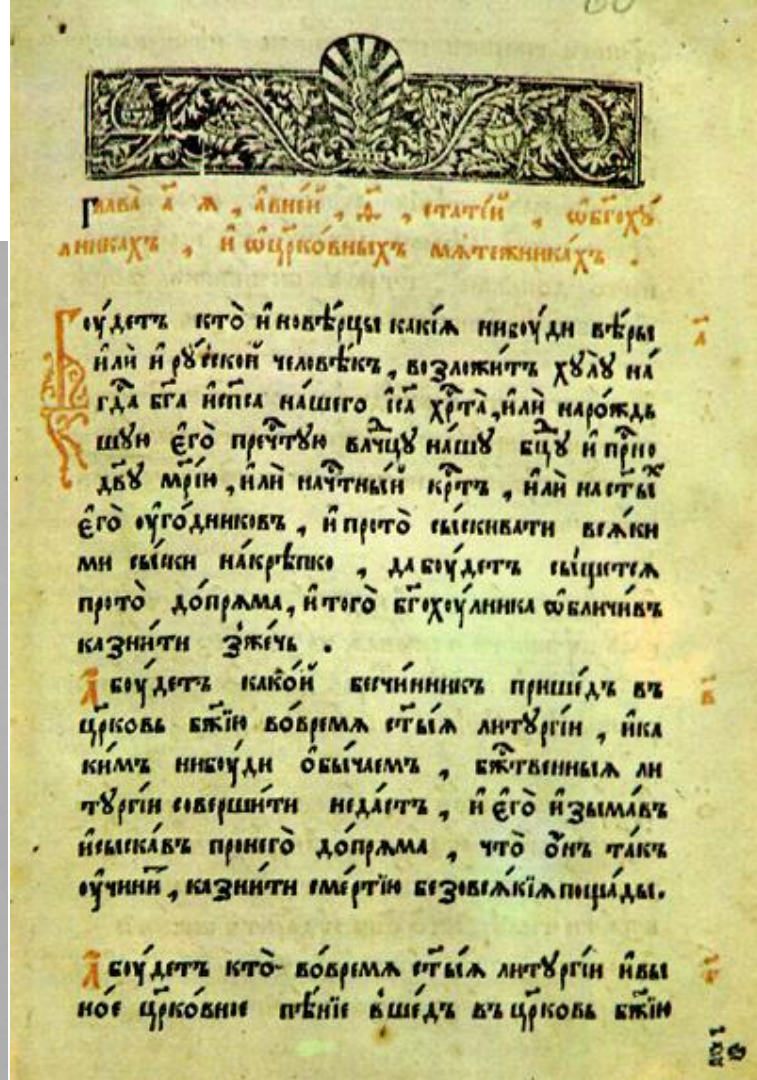 Глава̀ а҃ я , а҆вне́й , ѳ҃ , стате́й , ѡ҆бг҃оху́
лникахъ , и҆ ѡ҆цр҃ко́вныхъ мѧте́жника́хъ .
Боу́детъ кто̀ и҆нове́рцы какі́ѧ нибоу́ди вѣ́ры
и҆лѝ и҆ ру́сской человѣ́къ , возложи́тъ хулу̀ на́
гд҃а бг҃а и҆сп҃са на́шего і҆с҃а хр҃та̀ , и҆лѝ наро́ждь
шую є҆го̀ преч҃тую влч҃цу на́шу бц҃у и҆ пр҃но
дв҃у мр҃і́ю , и҆лѝ нач҃тны́й кр҃тъ , и҆лѝ насты҃х
є҆го̀ оу҆го́дниковъ , и҆ прото̀ сы́скивати всѧ́ки
ми сы́ски на́крѣпко , да боу́детъ сы́щетсѧ
прото̀ до́прѧма , и҆ того̀ бг҃охоу́лника ѡ҆бличи́въ
казни́ти зже́чь .
А҆ боу́детъ како́й бесчи́нникъ прише́дъ въ
цр҃ковь бж҃ію во́времѧ ст҃ы́ѧ литургі́и , и҆ка
ки́мъ нибоу́ди ѻ҆бы́чаемъ , бж҃твенныѧ ли
тургі́и соверши́ти неда́стъ , и҆ є҆го̀ и҆зыма́въ
и҆сыска́въ пронего̀ до́прѧма , что̀ ѻ҆́нъ та́къ
оу҆чини́тъ , казни́ти сме́ртїю безовсѧ́кїѧ поща́ды .
А҆ боу́детъ кто̀ во́времѧ ст҃ы́ѧ литургі́и и҆вы
но́е цр҃ко́вное пѣ́нїе вше́дъ въ цр҃ковь бж҃ію
а҃
в҃
г҃